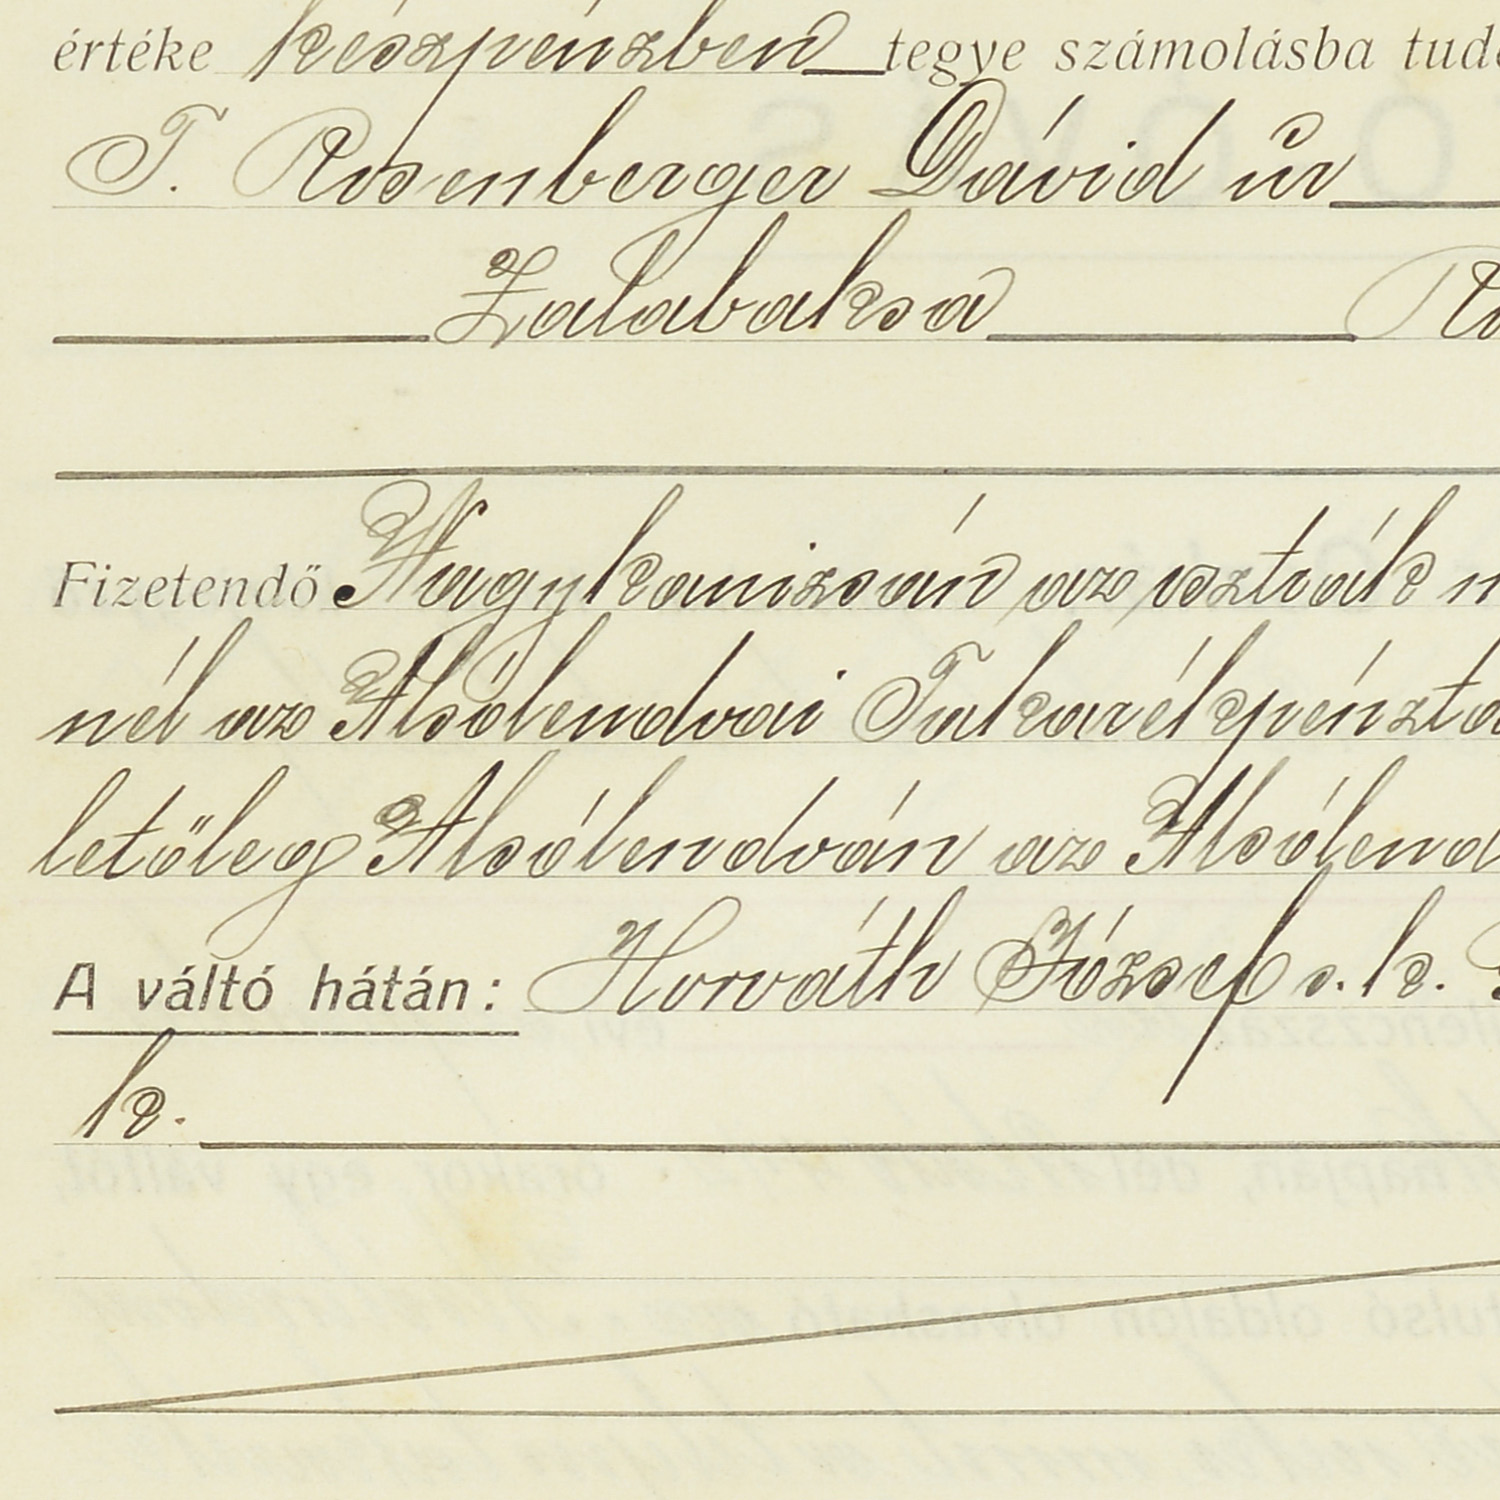 értéke készpénzben tegye számolásba tud
T. Rosenberger Dávid úr
Zalabaksa
Fizetendő Nagykanizsán az osztrák
nél az Alsólendvai Takarékpénzt
letőleg Alsólendván az Alsólend
A váltó hátán: Horváth József s. k.
k.